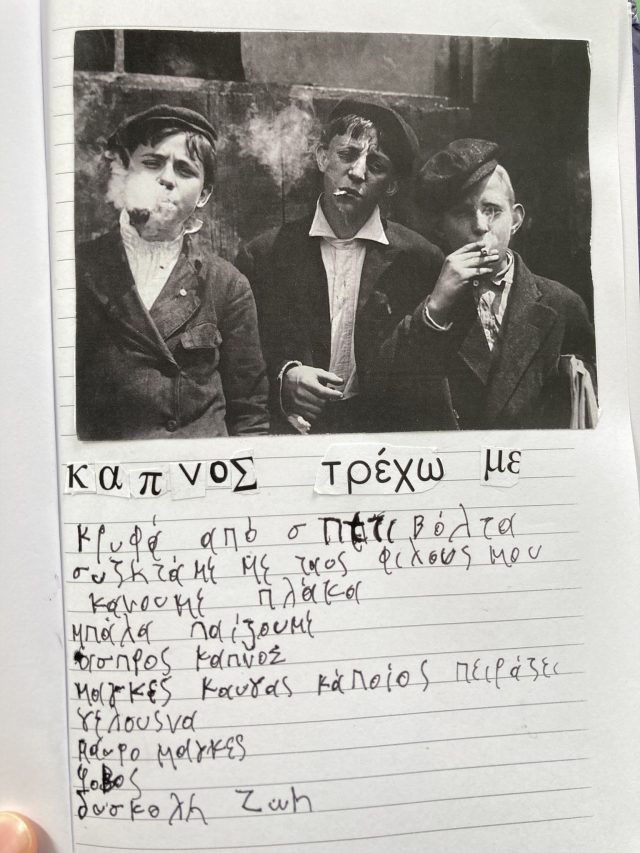 καπνοΣ τρέχω με
κρυφά από σπίτι βόλτα
συζκτάμε με τους φιλους μου
κανουμε πλάκα
μπάλα παίζουμε
άσπρος καπνος
μαγκες καυγας κάποιος πειράζει
γελουςνα
μάυρο μαγκες
φοβος
δυσκολη ζωη